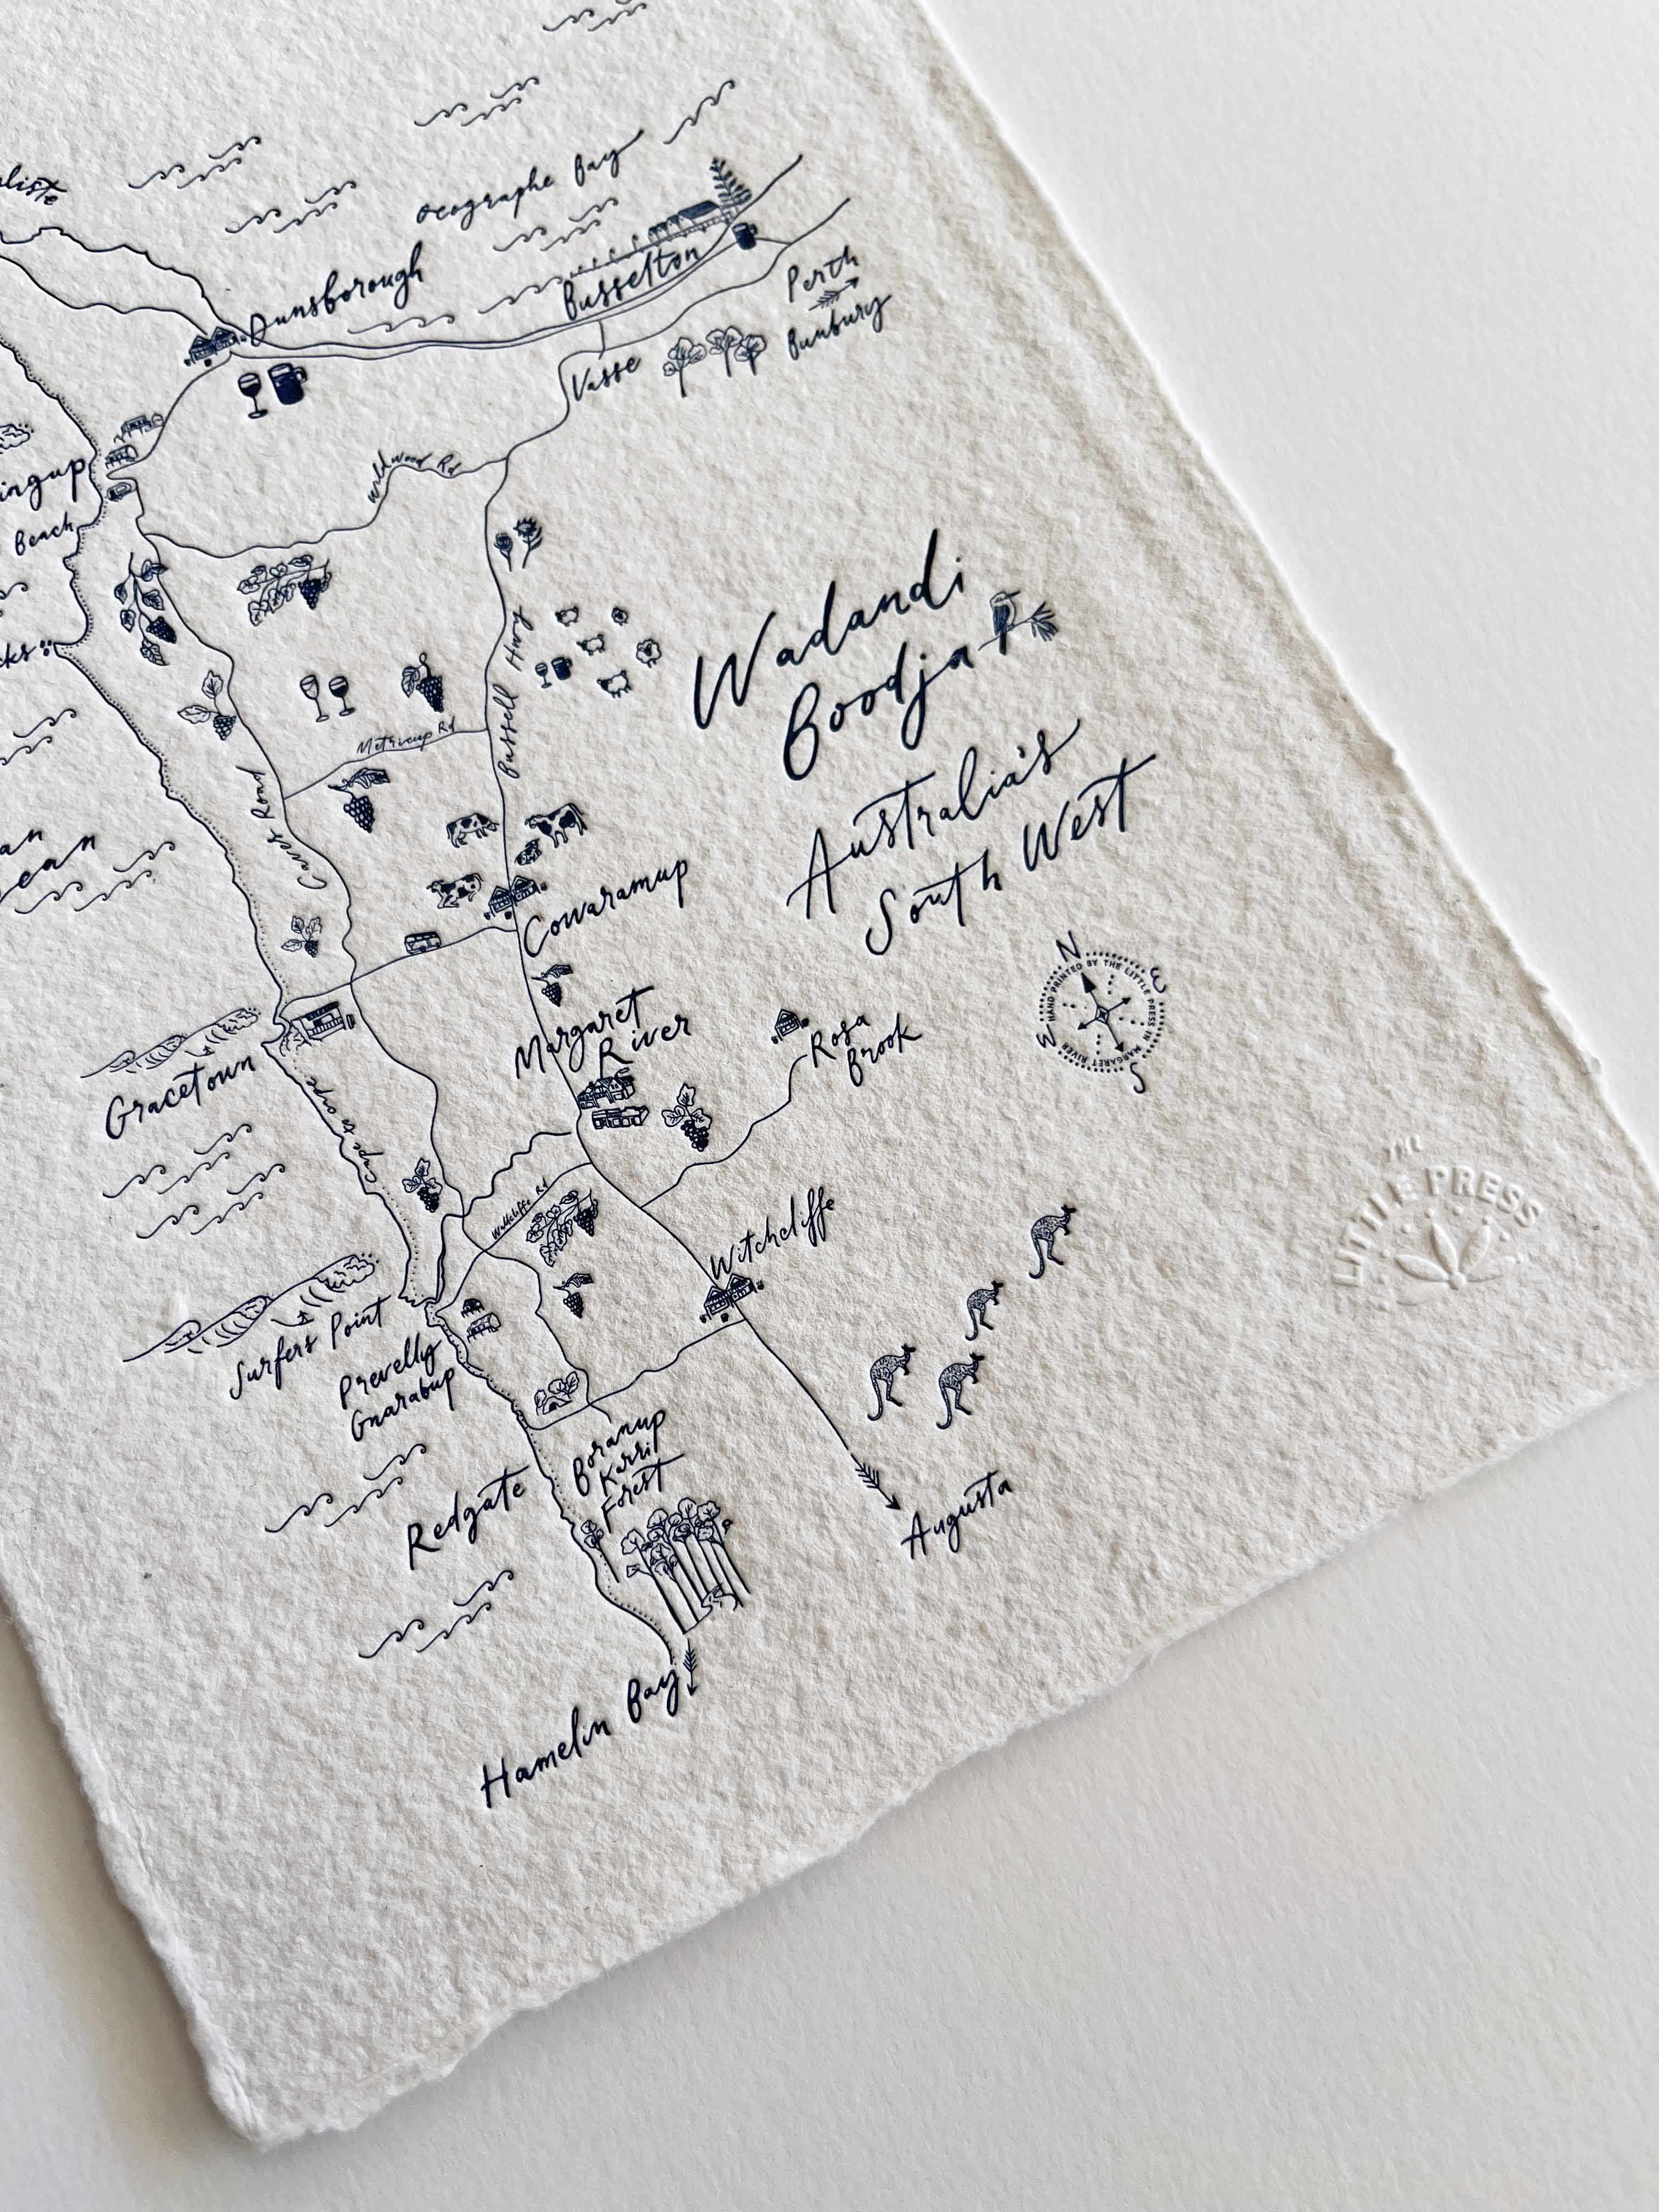 Geographe Bay
Dunsborough
Busselton
Perth
Bunbury
Vasse
Wildwood Rd
Beach
Bussell Hwy
Wadandi
Boodja
Australia's
South West
Metricup Rd
Caves Road
Cowaramup
Margaret
River
Rosa
Brook
N
E
S
W
HAND PRINTED BY THE LITTLE PRESS IN MARGARET RIVER
Gracetown
Cape to Cape
Wallcliffe Rd
Witchcliffe
THE
LITTLE PRESS
Surfers Point
Prevelly
Gnarabup
Boranup
Karri
Forest
Redgate
Augusta
Hamelin Bay